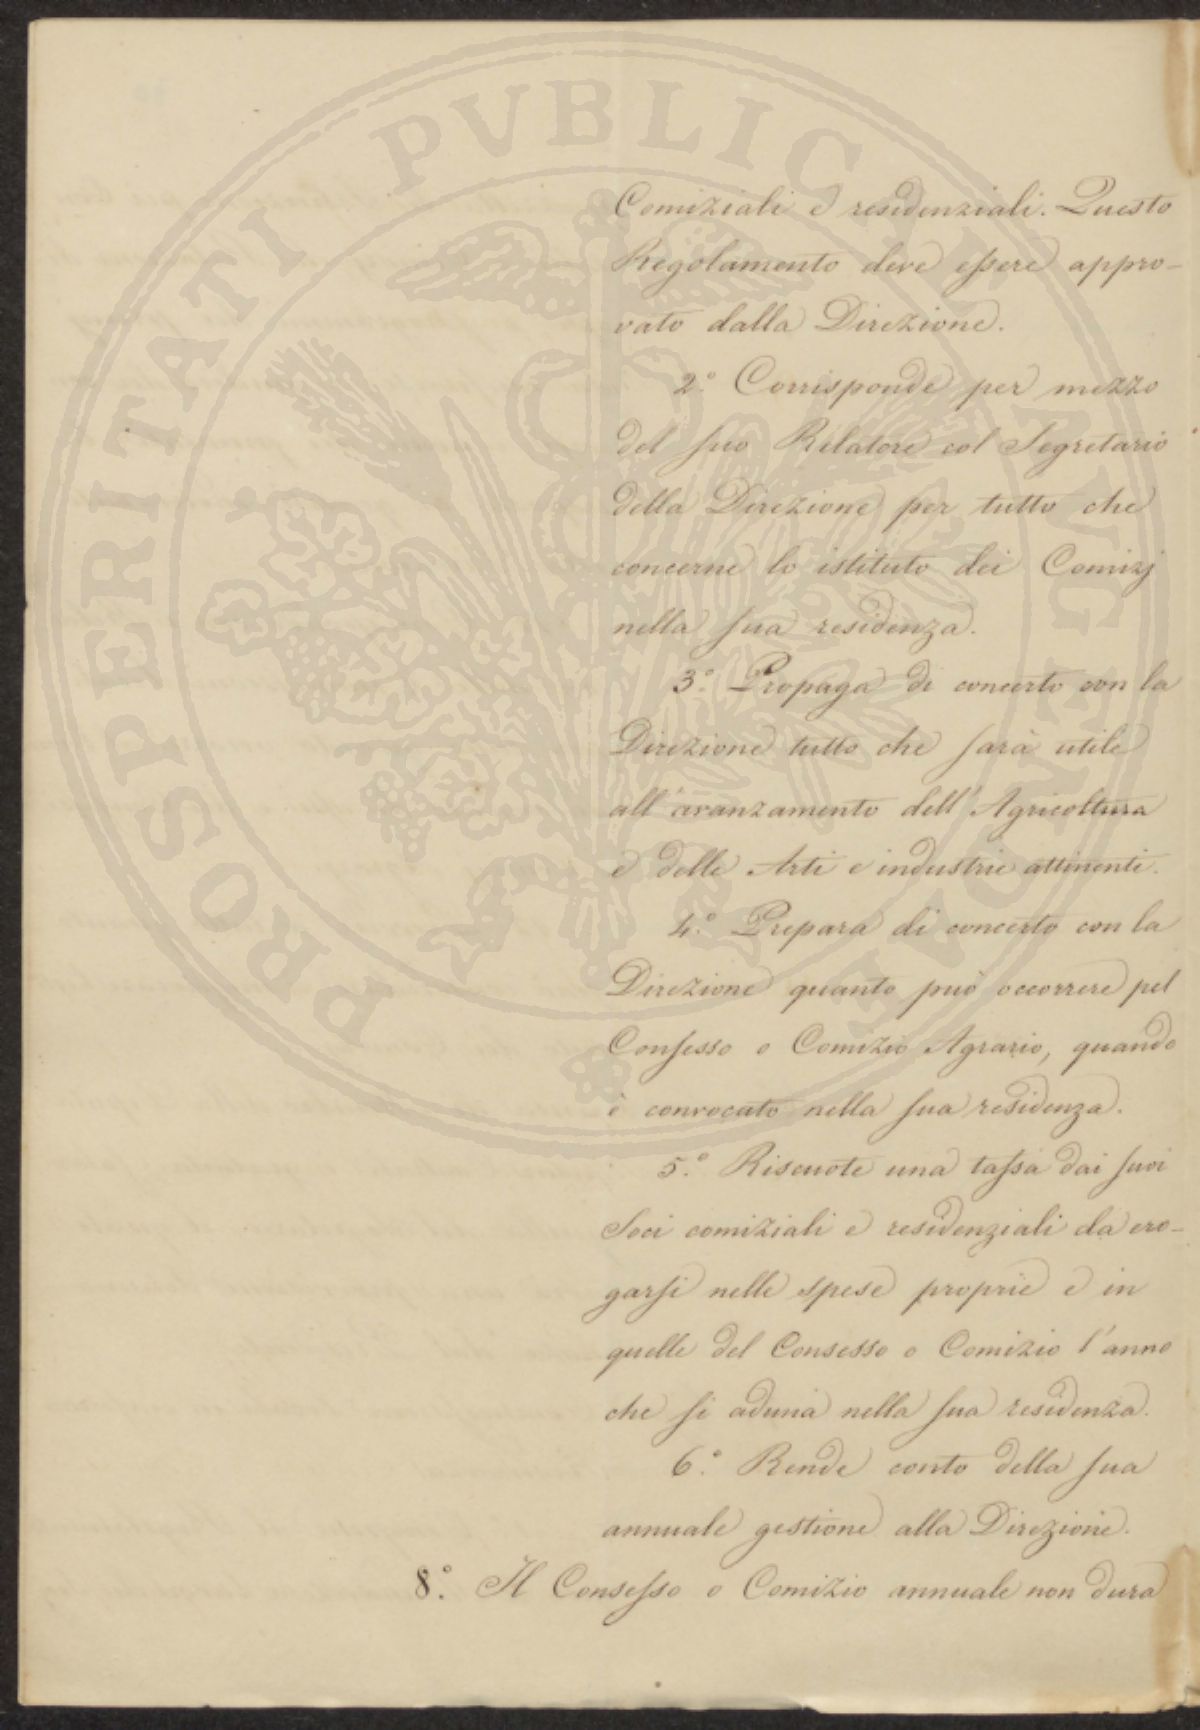 PROSPERITATI PVBLICAE AVGENDAE
Comiziali e residenziali. Questo
Regolamento deve essere appro-
vato dalla Direzione.
2.° Corrisponde per mezzo
del suo Relatore col Segretario
della Direzione per tutto che
concerne lo istituto dei Comizj
nella sua residenza.
3.° Propaga di concerto con la
Direzione tutto che sarà utile
all'avanzamento dell'Agricoltura
e delle Arti e industrie attinenti.
4.° Prepara di concerto con la
Direzione quanto può occorrere pel
Consesso o Comizio Agrario, quando
è convocato nella sua residenza.
5.° Riscuote una tassa dai suoi
Soci comiziali e residenziali da ero-
garsi nelle spese proprie e in
quelle del Consesso o Comizio l'anno
che si aduna nella sua residenza.
6.° Rende conto della sua
annuale gestione alla Direzione.
8.° Il Consesso o Comizio annuale non dura